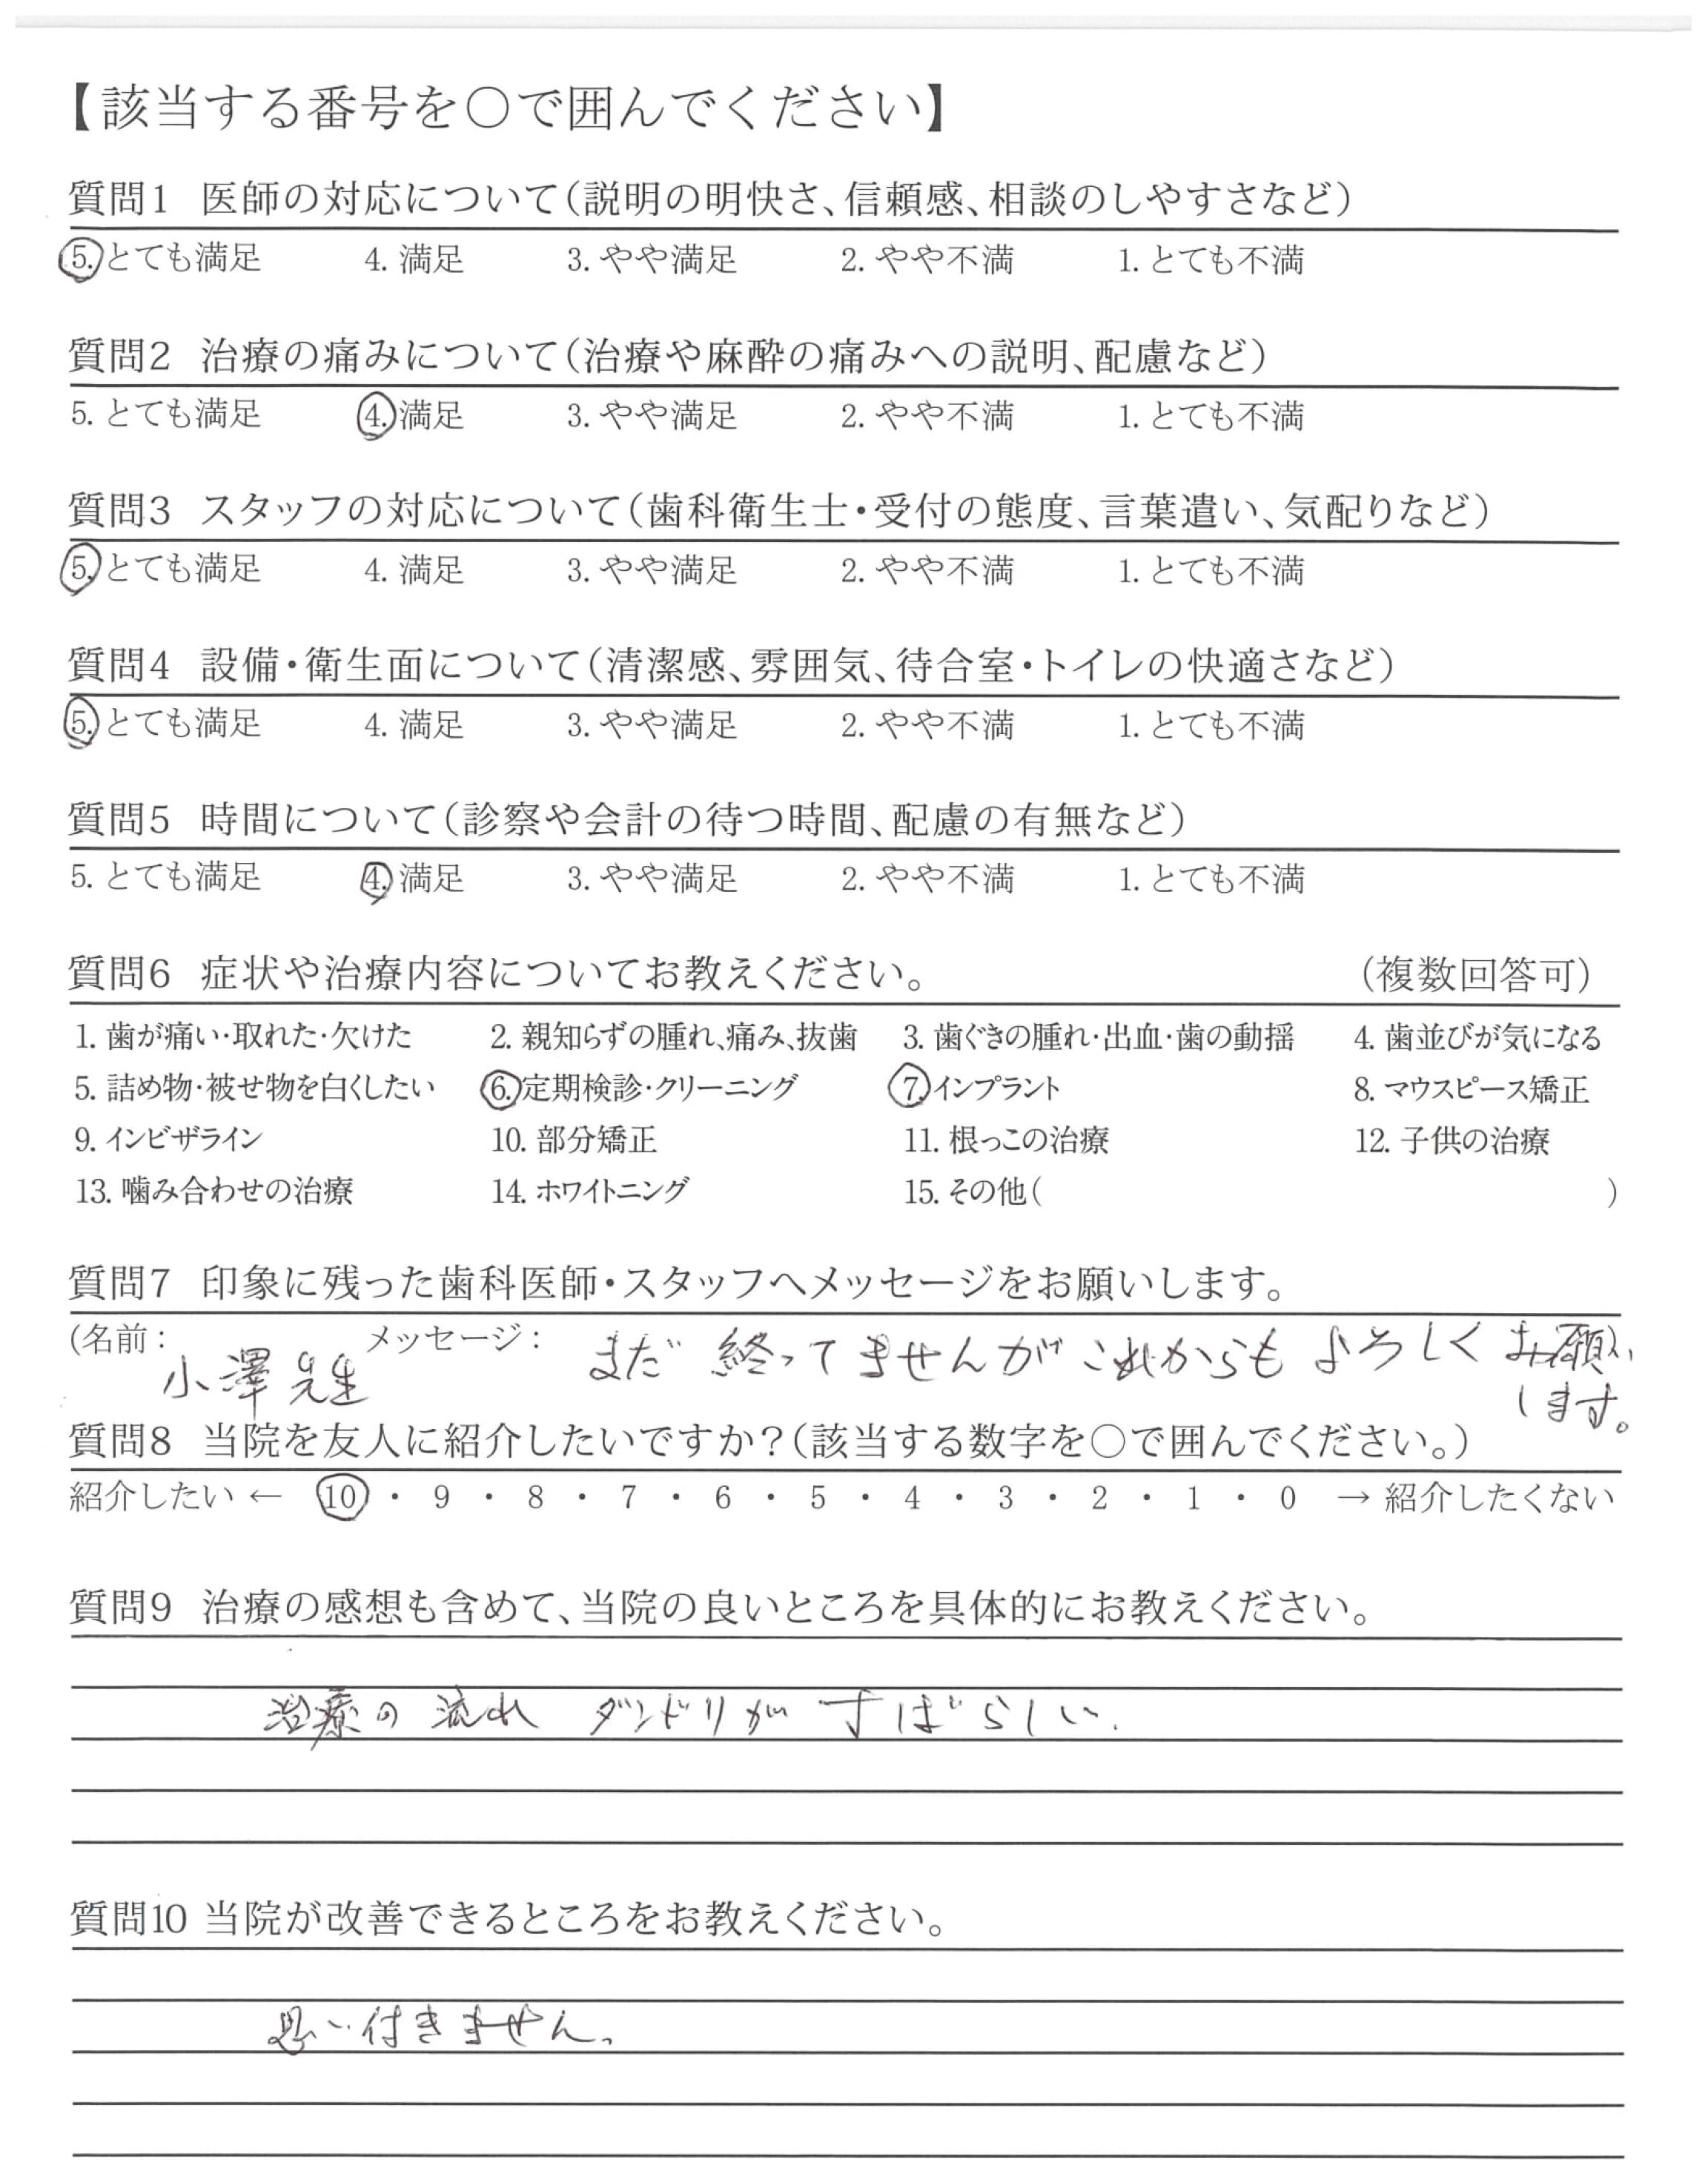 【該当する番号を○で囲んでください】
質問1 医師の対応について(説明の明快さ、信頼感、相談のしやすさなど)
5. とても満足 4. 満足 3. やや満足 2. やや不満 1. とても不満
質問2 治療の痛みについて(治療や麻酔の痛みへの説明、配慮など)
5. とても満足 4. 満足 3. やや満足 2. やや不満 1. とても不満
質問3 スタッフの対応について(歯科衛生士・受付の態度、言葉遣い、気配りなど)
5. とても満足 4. 満足 3. やや満足 2. やや不満 1. とても不満
質問4 設備・衛生面について(清潔感、雰囲気、待合室・トイレの快適さなど)
5. とても満足 4. 満足 3. やや満足 2. やや不満 1. とても不満
質問5 時間について(診察や会計の待つ時間、配慮の有無など)
5. とても満足 4. 満足 3. やや満足 2. やや不満 1. とても不満
質問6 症状や治療内容についてお教えください。 (複数回答可)
1. 歯が痛い・取れた・欠けた 2. 親知らずの腫れ、痛み、抜歯 3. 歯ぐきの腫れ・出血・歯の動揺 4. 歯並びが気になる
5. 詰め物・被せ物を白くしたい 6. 定期検診・クリーニング 7. インプラント 8. マウスピース矯正
9. インビザライン 10. 部分矯正 11. 根っこの治療 12. 子供の治療
13. 噛み合わせの治療 14. ホワイトニング 15. その他( )
質問7 印象に残った歯科医師・スタッフへメッセージをお願いします。
(名前: 小澤先生 メッセージ: まだ終ってませんがこれからもよろしくお願い
します。
質問8 当院を友人に紹介したいですか?(該当する数字を○で囲んでください。)
紹介したい ← 10 ・ 9 ・ 8 ・ 7 ・ 6 ・ 5 ・ 4 ・ 3 ・ 2 ・ 1 ・ 0 → 紹介したくない
質問9 治療の感想も含めて、当院の良いところを具体的にお教えください。
治療の流れ ダンドリが すばらしい.
質問10 当院が改善できるところをお教えください。
思い付きません。